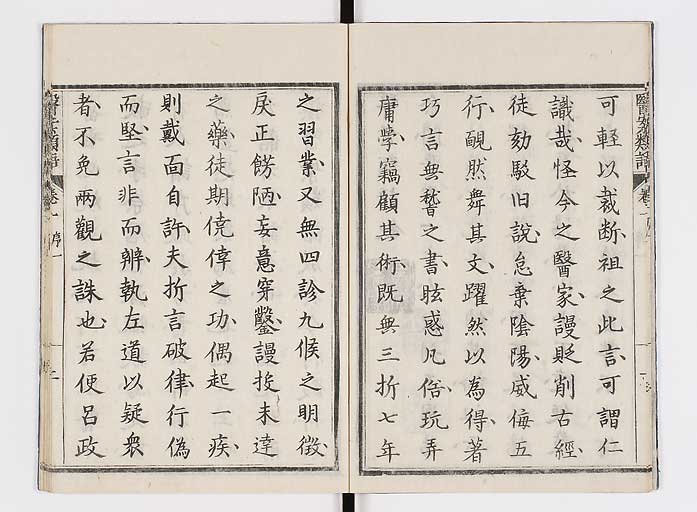 可輕以裁断祖之此言可謂仁
識哉怪今之醫家謾貶削古經
徒劾駁旧說怠棄陰陽威侮五
行靦然舞其文躍然以為得著
巧言無瞀之書眩惑凡俗玩弄
庸學竊顧其術既無三折七年
之習業又無四診九候之明徵
戾正餝陋妄意穿鑿謾投未達
之藥徒期僥倖之功偶起一疾
則戴面自許夫折言破律行偽
而堅言非而辨執左道以疑衆
者不免兩觀之誅也若使呂政